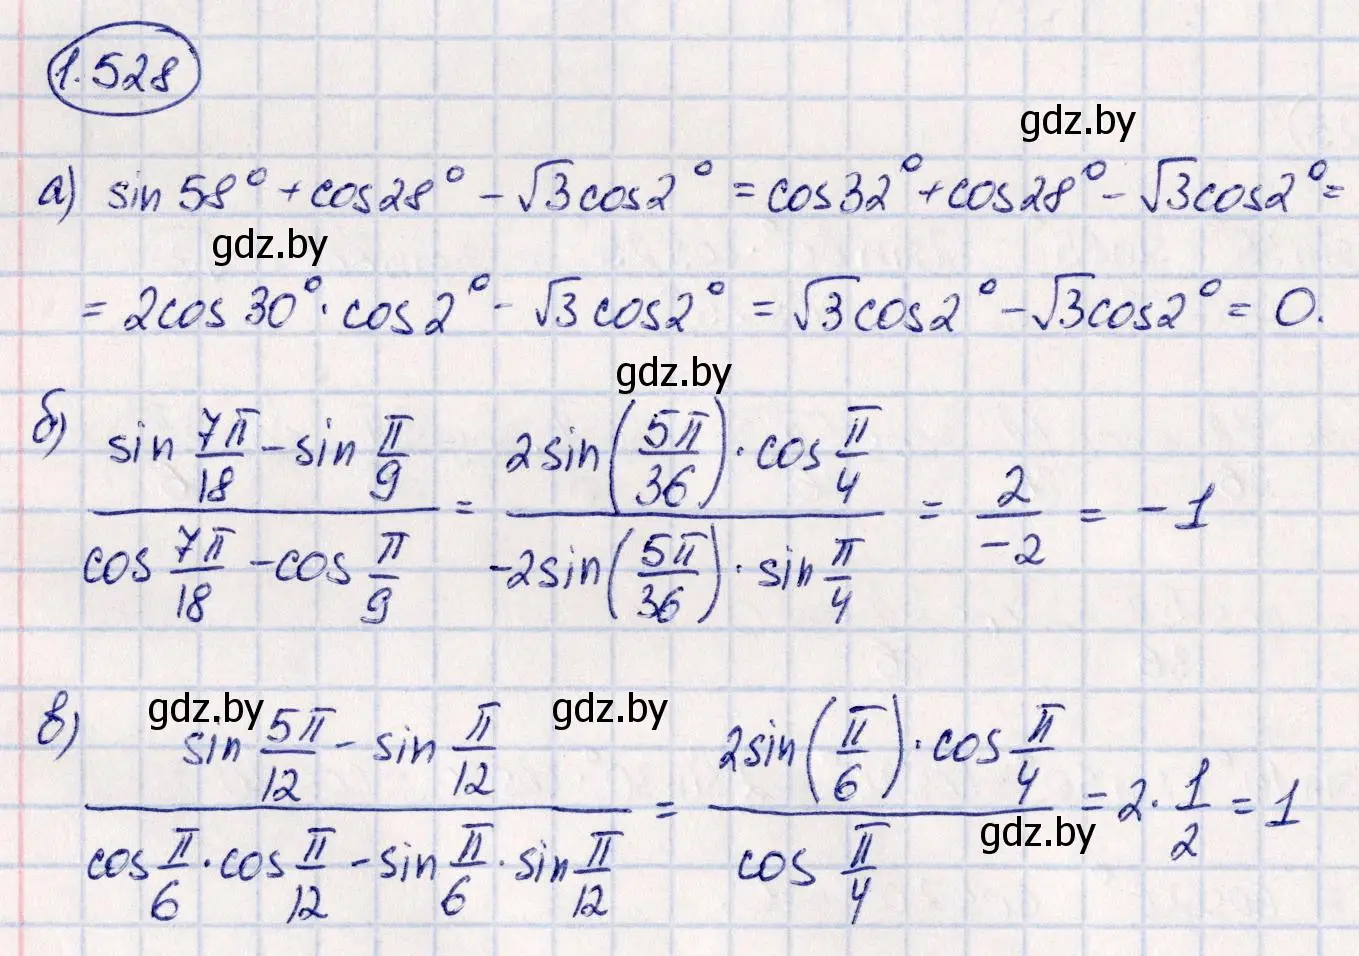 1.528
gdz.by
а) sin 58° + cos 28° − √3 cos 2° = cos 32° + cos 28° − √3 cos 2° =
gdz.by
= 2cos 30° · cos 2° − √3 cos 2° = √3 cos 2° − √3 cos 2° = 0.
gdz.by
б) (sin 7π/18 − sin π/9) / (cos 7π/18 − cos π/9) = (2 sin(5π/36) · cos π/4) / (−2 sin(5π/36) · sin π/4) = 2/−2 = −1
gdz.by gdz.by
в) (sin 5π/12 − sin π/12) / (cos π/6 · cos π/12 − sin π/6 · sin π/12) = (2 sin(π/6) · cos π/4) / (cos π/4) = 2 · 1/2 = 1
gdz.by